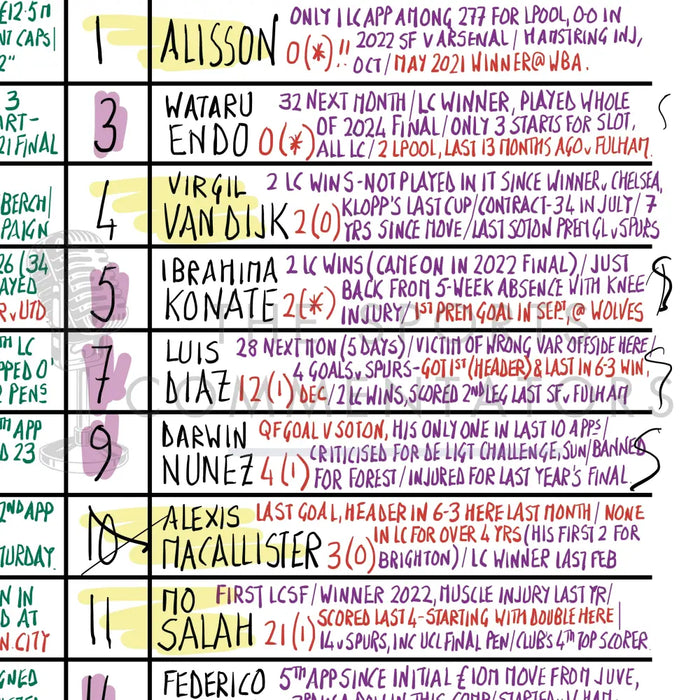 £12·5M
NT CAPS|
2"
1 ALISSON 0(*)!!
ONLY 1 LC APP AMONG 277 FOR LPOOL, 0-0 IN
2022 SF V ARSENAL / HAMSTRING INJ,
OCT / MAY 2021 WINNER @ WBA.
3
ART-
21 FINAL
3 WATARU
ENDO 0(*)
32 NEXT MONTH / LC WINNER, PLAYED WHOLE
OF 2024 FINAL / ONLY 3 STARTS FOR SLOT,
ALL LC / 2 LPOOL, LAST 13 MONTHS AGO V FULHAM.
BERCH/
PAIGN
4 VIRGIL
VAN DIJK 2(0)
2 LC WINS - NOT PLAYED IN IT SINCE WINNER V CHELSEA,
KLOPP'S LAST CUP / CONTRACT - 34 IN JULY / 7
YRS SINCE MOVE / LAST SOTON PREM GL V SPURS
26 (34
AYED
R V UTD
5 IBRAHIMA
KONATE 2(*)
2 LC WINS (CAME ON IN 2022 FINAL) / JUST
BACK FROM 5-WEEK ABSENCE WITH KNEE
INJURY / 1ST PREM GOAL IN SEPT, @ WOLVES
TH LC
PPED O'
2 PENS
7 LUIS
DIAZ 12(1)
28 NEXT MON (5 DAYS) / VICTIM OF WRONG VAR OFFSIDE HERE /
4 GOALS V SPURS - GOT 1ST (HEADER) & LAST IN 6-3 WIN,
DEC / 2 LC WINS, SCORED 2ND LEG LAST SF V FULHAM
TH APP
D 23
9 DARWIN
NUNEZ 4(1)
QF GOAL V SOTON, HIS ONLY ONE IN LAST 10 APPS /
CRITICISED FOR DE LIGT CHALLENGE, SUN / BANNED
FOR FOREST / INJURED FOR LAST YEAR'S FINAL.
2ND APP
TURDAY.
10 ALEXIS
MACALLISTER 3(0)
LAST GOAL, HEADER IN 6-3 HERE LAST MONTH / NONE
IN LC FOR OVER 4 YRS (HIS FIRST 2 FOR
BRIGHTON) / LC WINNER LAST FEB
N IN
D AT
N CITY
11 MO
SALAH 21(1)
FIRST LC SF / WINNER 2022, MUSCLE INJURY LAST YR /
SCORED LAST 4 - STARTING WITH DOUBLE HERE |
14 V SPURS, INC UCL FINAL PEN / CLUB'S 4TH TOP SCORER
GNED
FEDERICO
5TH APP SINCE INITIAL £10M MOVE FROM JUVE,
THE SPORTS
COMMENTATORS